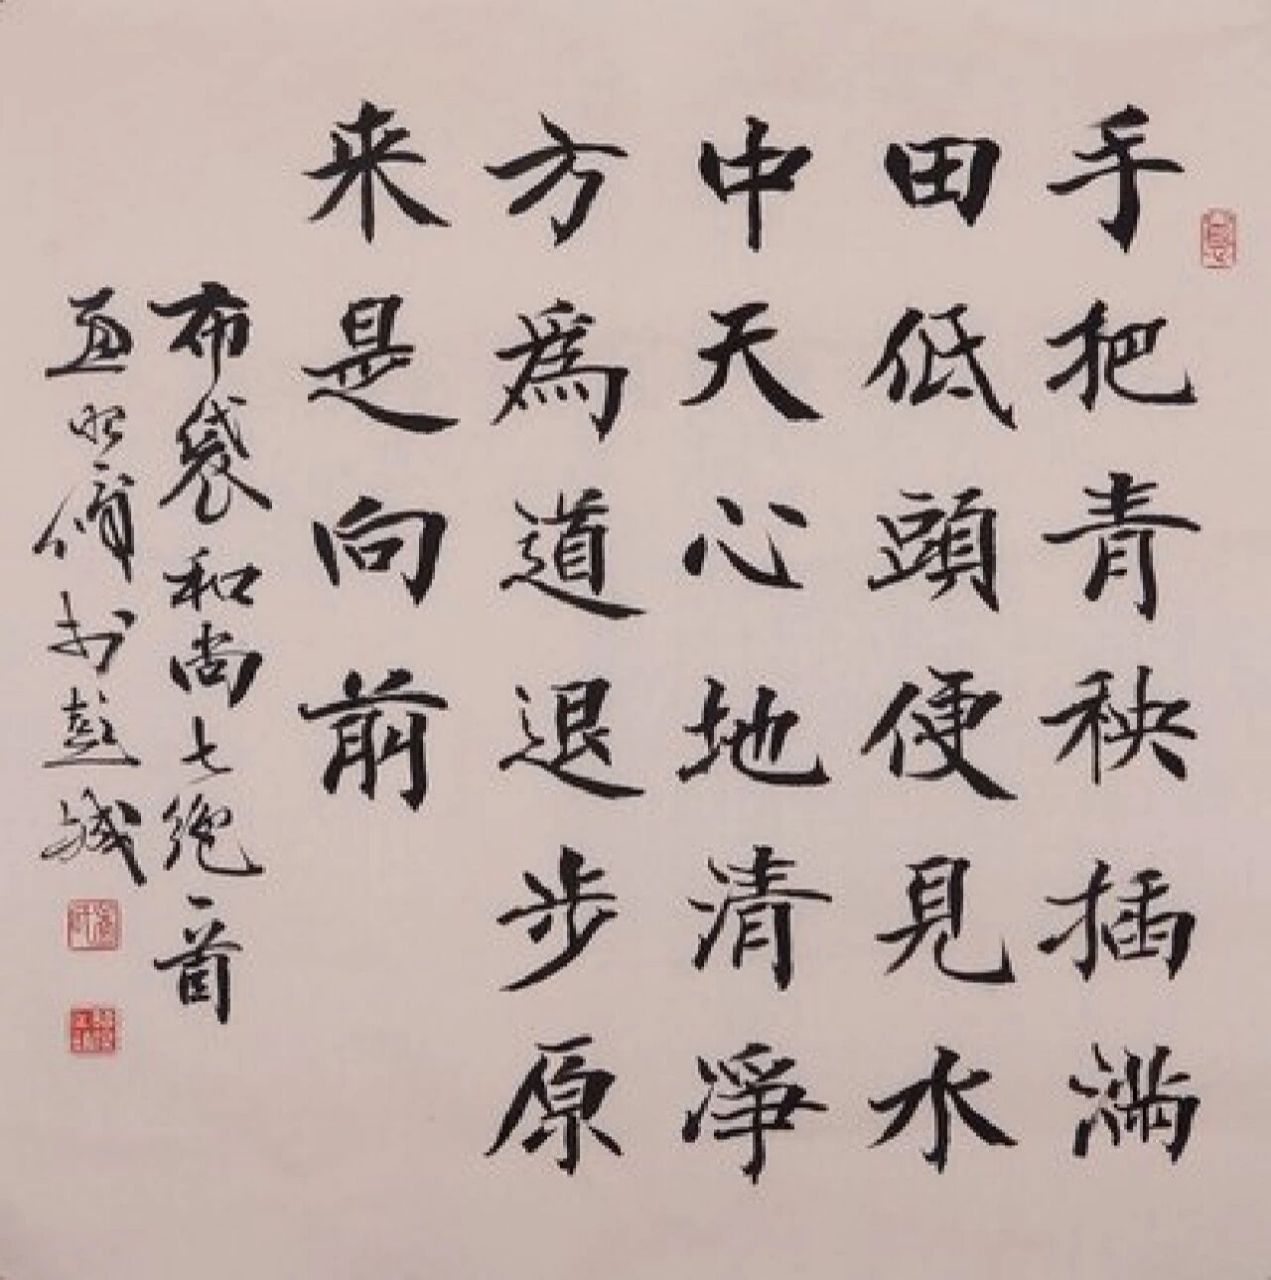 手把青秧插满
田低頭便見水
中天心地清凈
方為道退步原
来是向前
布袋和尚七絕一首
书彭城